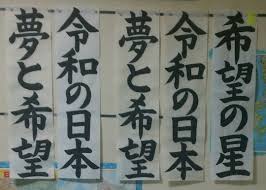 希望の星
令和の日本
夢と希望
令和の日本
夢と希望